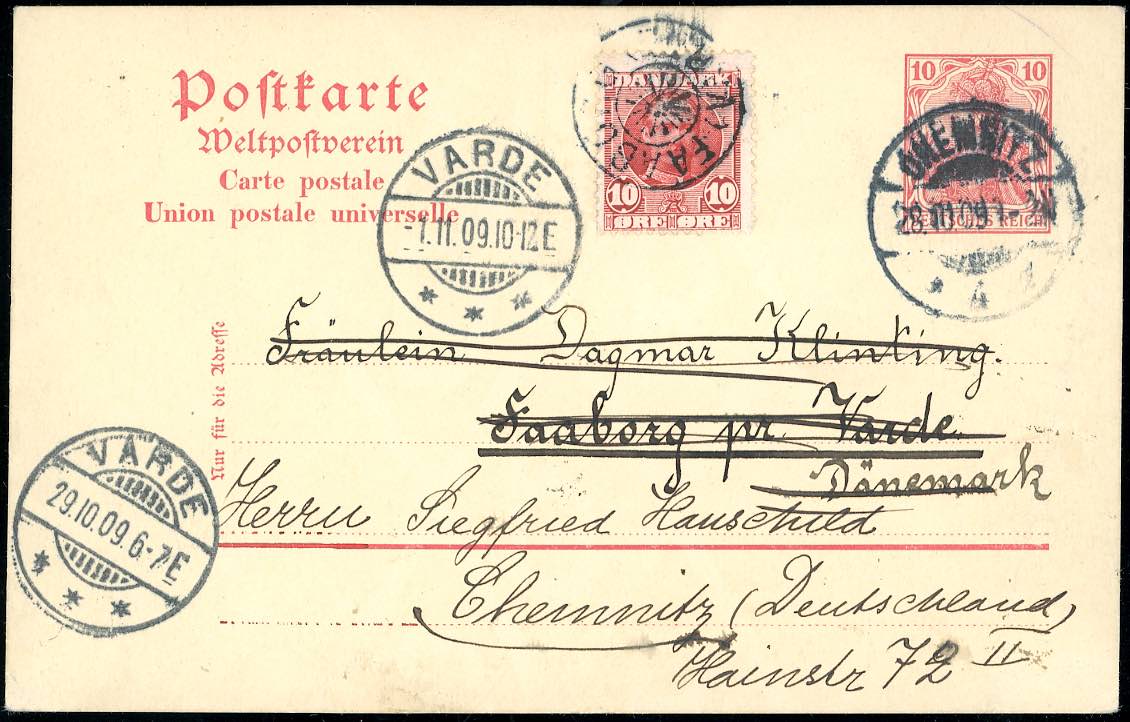 Postkarte
Weltpostverein
Carte postale
Union postale universelle
Nur für die Adresse
VARDE
-1.11.09.10-12E
* * *
DANMARK
10 10
ØRE ØRE
FAABORG
10 10
DEUTSCHES REICH
CHEMNITZ
28.10.09.
* 4
Fräulein Dagmar Klinting.
Faaborg pr. Varde.
Dänemark
VARDE
29.10.09.6-7E
* * * *
Herrn Siegfried Hauschild
Chemnitz (Deutschland)
Hainstr 72 II